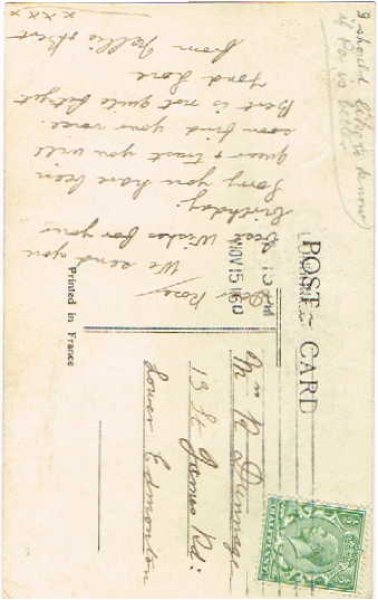 POST CARD
Printed in France
NOV 15
Dear Rose
We send you
Best Wishes for your
birthday.
Sorry you have been
queer & trust you will
soon find your voice.
Bert is not quite
Fond Love
from Nellie & Bert
x x x x
I should like to know
if Pa is better
Mrs Dunnage
13 St James Rd:
Lower Edmonton